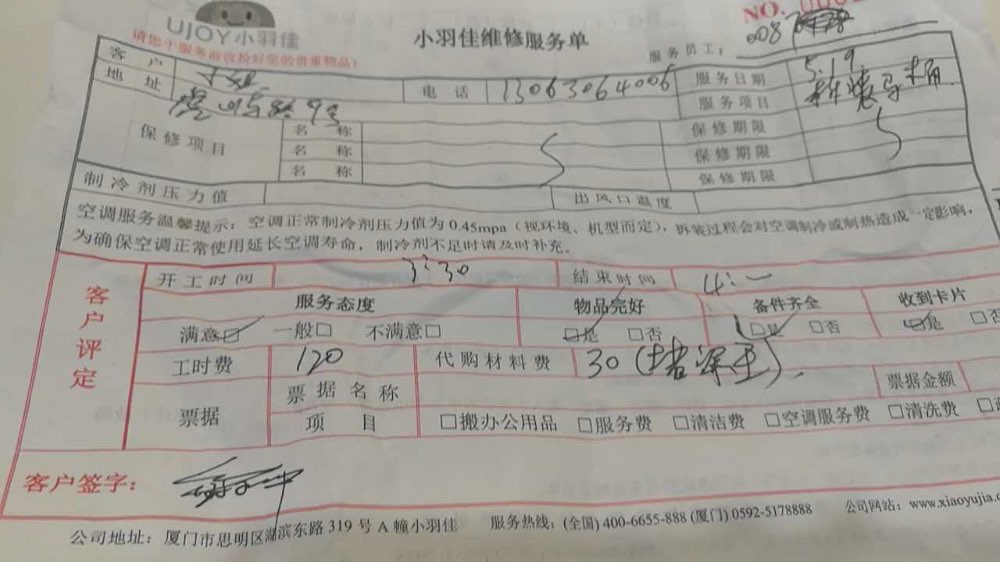 UJOY小羽佳
请您于服务前收捡好您的贵重物品!
小羽佳维修服务单
NO.
服务员工: 008
客户
电话 13063064006
服务日期 5.19
地址 9号
服务项目 拆装马桶
保修项目
名称 保修期限
名称 保修期限
名称 保修期限
制冷剂压力值 出风口温度
空调服务温馨提示:空调正常制冷剂压力值为0.45mpa(视环境、机型而定),拆装过程会对空调制冷或制热造成一定影响,
为确保空调正常使用延长空调寿命,制冷剂不足时请及时补充。
客户评定
开工时间 3:30 结束时间 4:
服务态度 物品完好 备件齐全 收到卡片
满意☑ 一般□ 不满意□ ☑是 □否 ☑是 □否 ☑是 □否
工时费 120 代购材料费 30
票据 票据名称 票据金额
项目 □搬办公用品 □服务费 □清洁费 □空调服务费 □清洗费
客户签字:
公司地址:厦门市思明区湖滨东路319号A幢小羽佳 服务热线:(全国)400-6655-888(厦门)0592-5178888 公司网站:www.xiaoyujia.c